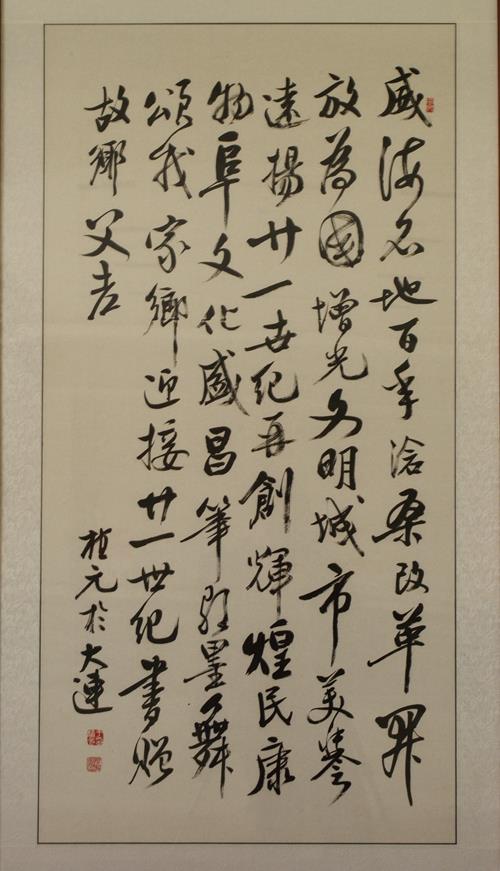 威海名地百年滄桑改革開
放為國增光文明城市美譽
遠揚廿一世紀再創輝煌民康
物阜文化盛昌筆歌墨舞
頌我家鄉迎接廿一世紀書贈
故鄉父老
植元於大連